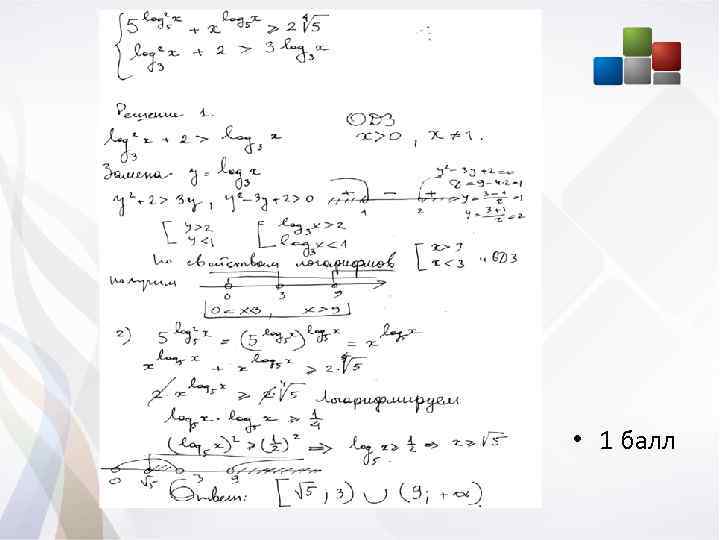 5^{log₅²x} + x^{log₅x} ≥ 2⁴√5
log₃²x + 2 > 3 log₃x
Решение 1. ОДЗ
log₃²x + 2 > log₃x x>0, x≠1.
Замена y = log₃x
y² - 3y + 2 = 0
y²+2>3y, y²-3y+2>0
+ - +
1 2
y = (3-1)/2 = 1
y = (3+1)/2 = 2
y>2 log₃x>2
y<1 log₃x<1
По свойствам логарифмов x>9
x<3 и ОДЗ
получим
0 3 9
0<x<3, x>9
2) 5^{log₅²x} = (5^{log₅x})^{log₅x} = x^{log₅x}
x^{log₅x} + x^{log₅x} ≥ 2·⁴√5
2 x^{log₅x} ≥ 2 ⁴√5 Логарифмируем
log₅x · log₅x ≥ 1/4
(log₅x)² ≥ (1/2)² ⇒ log₅x ≥ 1/2 ⇒ x ≥ √5
0 √5 3 9
Ответ: [√5; 3) ∪ (9; +∞)
• 1 балл